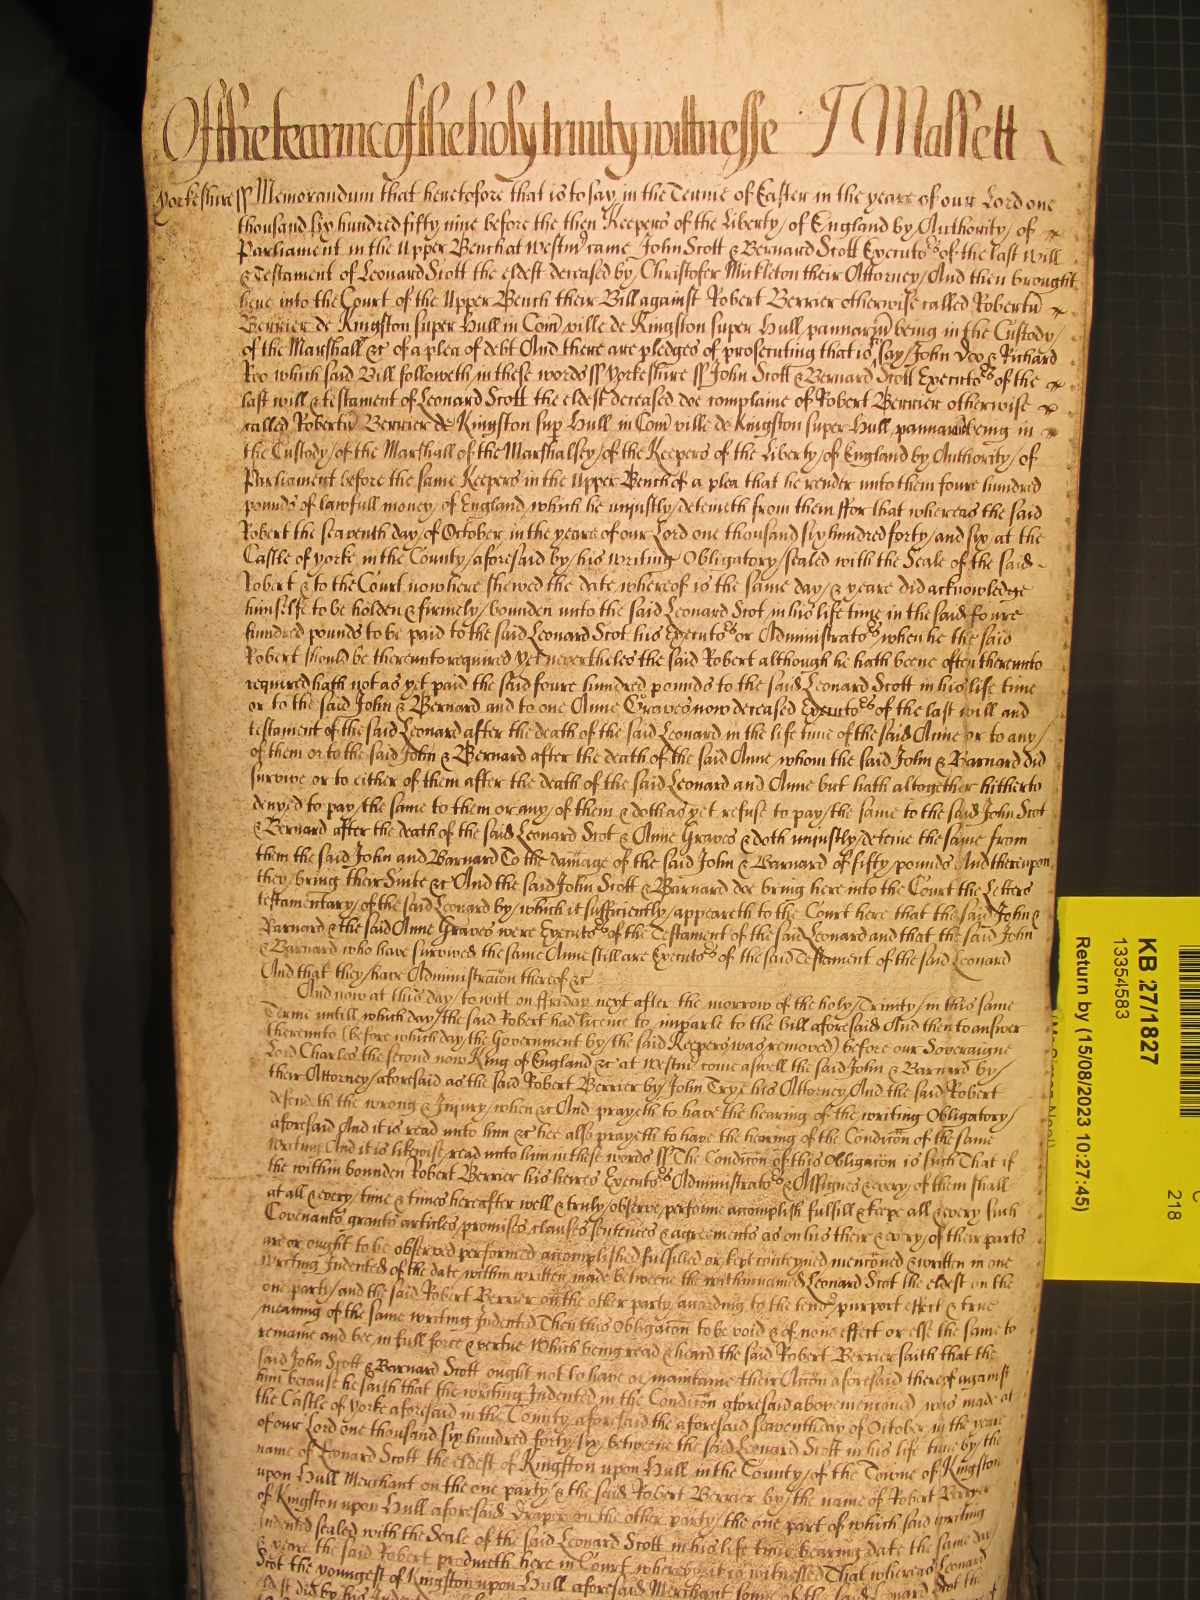 Of the tearme of the holy trinity wittnesse J Massett
Yorkeshire ss Memorandum that heretofore that is to say in the Terme of Easter in the yeare of our Lord one
thousand six hundred fifty nine before the then Keepers of the Liberty of England by Authority of
Parliament in the Upper Bench at Westm came John Scott & Bernard Scott Executors of the last will
& Testament of Leonard Scott the eldest deceased by Christofer Mickleton their Attorney And then brought
here into the Court of the Upper Bench their Bill against Robert Berrier otherwise called Robertu
Berrier de Kingston super Hull in Com ville de Kingston super Hull pannariu being in the Custody
of the Marshall &c of a plea of debt And there are pledges of prosecuting that is say John Doo & Richard
Roo which said Bill followeth in these words ss Yorkeshire ss John Scott & Bernard Scott Executors of the
last will & testament of Leonard Scott the eldest deceased doe complaine of Robert Berrier otherwise
called Robertu Berrier de Kingston sup Hull in Com ville de Kingston super Hull pannariu being in
the Custody of the Marshall of the Marshalsey of the Keepers of the Liberty of England by Authority of
Parliament before the same Keepers in the Upper Bench of a plea that he render unto them foure hundred
pounds of lawfull money of England which he unjustly deteineth from them ffor that whereas the said
Robert the seaventh day of October in the yeare of our Lord one thousand six hundred forty and six at the
Castle of yorke in the County aforesaid by his writing Obligatory sealed with the Seale of the said
Robert & to the Court now here shewed the date whereof is the same day & yeare did acknowledge
himselfe to be holden & firmely bounden unto the said Leonard Scot in his life time in the said foure
hundred pounds to be paid to the said Leonard Scot his Executors or Administrators when he the said
Robert should be thereunto required yet nevertheles the said Robert although he hath beene often thereunto
required hath not as yet paid the said foure hundred pounds to the said Leonard Scott in his life time
or to the said John & Bernard and to one Anne Graves now deceased Executors of the last will and
testament of the said Leonard after the death of the said Leonard in the life time of the said Anne or to any
of them or to the said John & Bernard after the death of the said Anne whom the said John & Barnard did
survive or to either of them after the death of the said Leonard and Anne but hath altogether hitherto
denyed to pay the same to them or any of them & doth as yet refuse to pay the same to the said John Scot
& Bernard after the death of the said Leonard Scot & Anne Graves & doth unjustly deteine the same from
them the said John and Barnard To the damage of the said John & Barnard of fifty pounds And thereupon
they bring their Suite &c And the said John Scott & Barnard doe bring here into the Court the Letters
testamentary of the said Leonard by which it sufficiently appeareth to the Court here that the said John &
Barnard & the said Anne Graves were Executors of the Testament of the said Leonard and that the said John
& Barnard who have survived the same Anne still are Executors of the said Testament of the said Leonard
And that they have Administracion thereof &c
And now at this day to witt on ffriday next after the morrow of the holy Trinity in this same
Terme untill which day the said Robert had licence to imparle to the bill aforesaid And then to answer
thereunto (before which day the Government by the said Keepers was removed) before our Soveraigne
Lord Charles the second now King of England &c at Westm come aswell the said John & Barnard by
their Attorney aforesaid as the said Robert Berrier by John Trye his Attorney And the said Robert
defendeth the wrong & Injury when &c And prayeth to have the hearing of the writing Obligatory
aforesaid And it is read unto him &c hee also prayeth to have the hearing of the Condicon of the same
writing And it is likewise read unto him in these words ss The Condicon of this Obligacion is such That if
the within bounden Robert Berrier his heires Executors Administrators & Assignes & every of them shall
at all & every time & times hereafter well & truly observe performe accomplish fulfill & keepe all & every such
Covenants grants articles promises clauses sentences & agreements as on his their & every of their parts
are or ought to be observed performed accomplished fulfilled or kept conteyned mencioned & written in one
writing Indented of the date within written made betweene the within named Leonard Scot the eldest on the
one party and the said Robert Berrier on the other party according to the tenor purport effect & true
meaning of the same writing Indented Then this Obligacion to be void & of none effect or else the same to
remaine and bee in full force & vertue Which being read & heard the said Robert Berrier saith that the
said John Scott & Barnard Scott ought not to have or maintaine their Accion aforesaid thereof against
him because he saith that the writing Indented in the Condicion aforesaid above mencioned was made at
the Castle of yorke aforesaid in the County aforesaid the aforesaid seaventh day of October in the yeare
of our Lord one thousand six hundred forty six betweene the said Leonard Scott in his life time by the
name of Leonard Scott the eldest of Kingston upon Hull in the County of the Towne of Kingston
upon Hull Merchant on the one party & the said Robert Berrier by the name of Robert Berrier
of Kingston upon Hull aforesaid Draper on the other party the one part of which said writing
Indented sealed with the Seale of the said Leonard Scott in his life time bearing date the same day
& yeare the said Robert produceth here in Court whereby it is witnessed That whereas Leonard
Scot the youngest of Kingston upon Hull aforesaid Merchant sonne of the said Leonard Scot the
eldest did by his
KB 27/1827
13354583
Return by (15/08/2023 10:27:45)
218